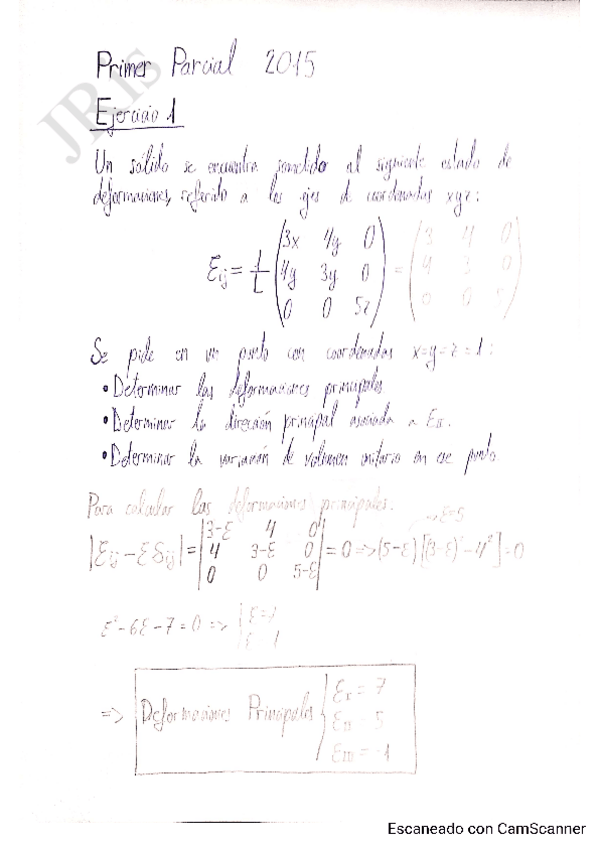 Primer Parcial 2015
JRis
Ejercicio 1
Un sólido se encuentra sometido al siguiente estado de
deformaciones, referido a los ejes de coordenadas xyz:
Eij = 1/L (3x 4y 0; 4y 3y 0; 0 0 5z) = (3 4 0; 4 3 0; 0 0 5)
Se pide en un punto con coordenadas x=y=z=1:
• Determinar las deformaciones principales.
• Determinar la dirección principal asociada a EII.
• Determinar la variación de volumen unitario en ese punto.
Para calcular las deformaciones principales.
→ε=5
|εij-εδij| = |3-ε 4 0; 4 3-ε 0; 0 0 5-ε| = 0 => (5-ε)[(3-ε)²-4²]=0
ε²-6ε-7=0 =>
=> Deformaciones Principales { εI = 7
εII = 5
εIII = -1
Escaneado con CamScanner